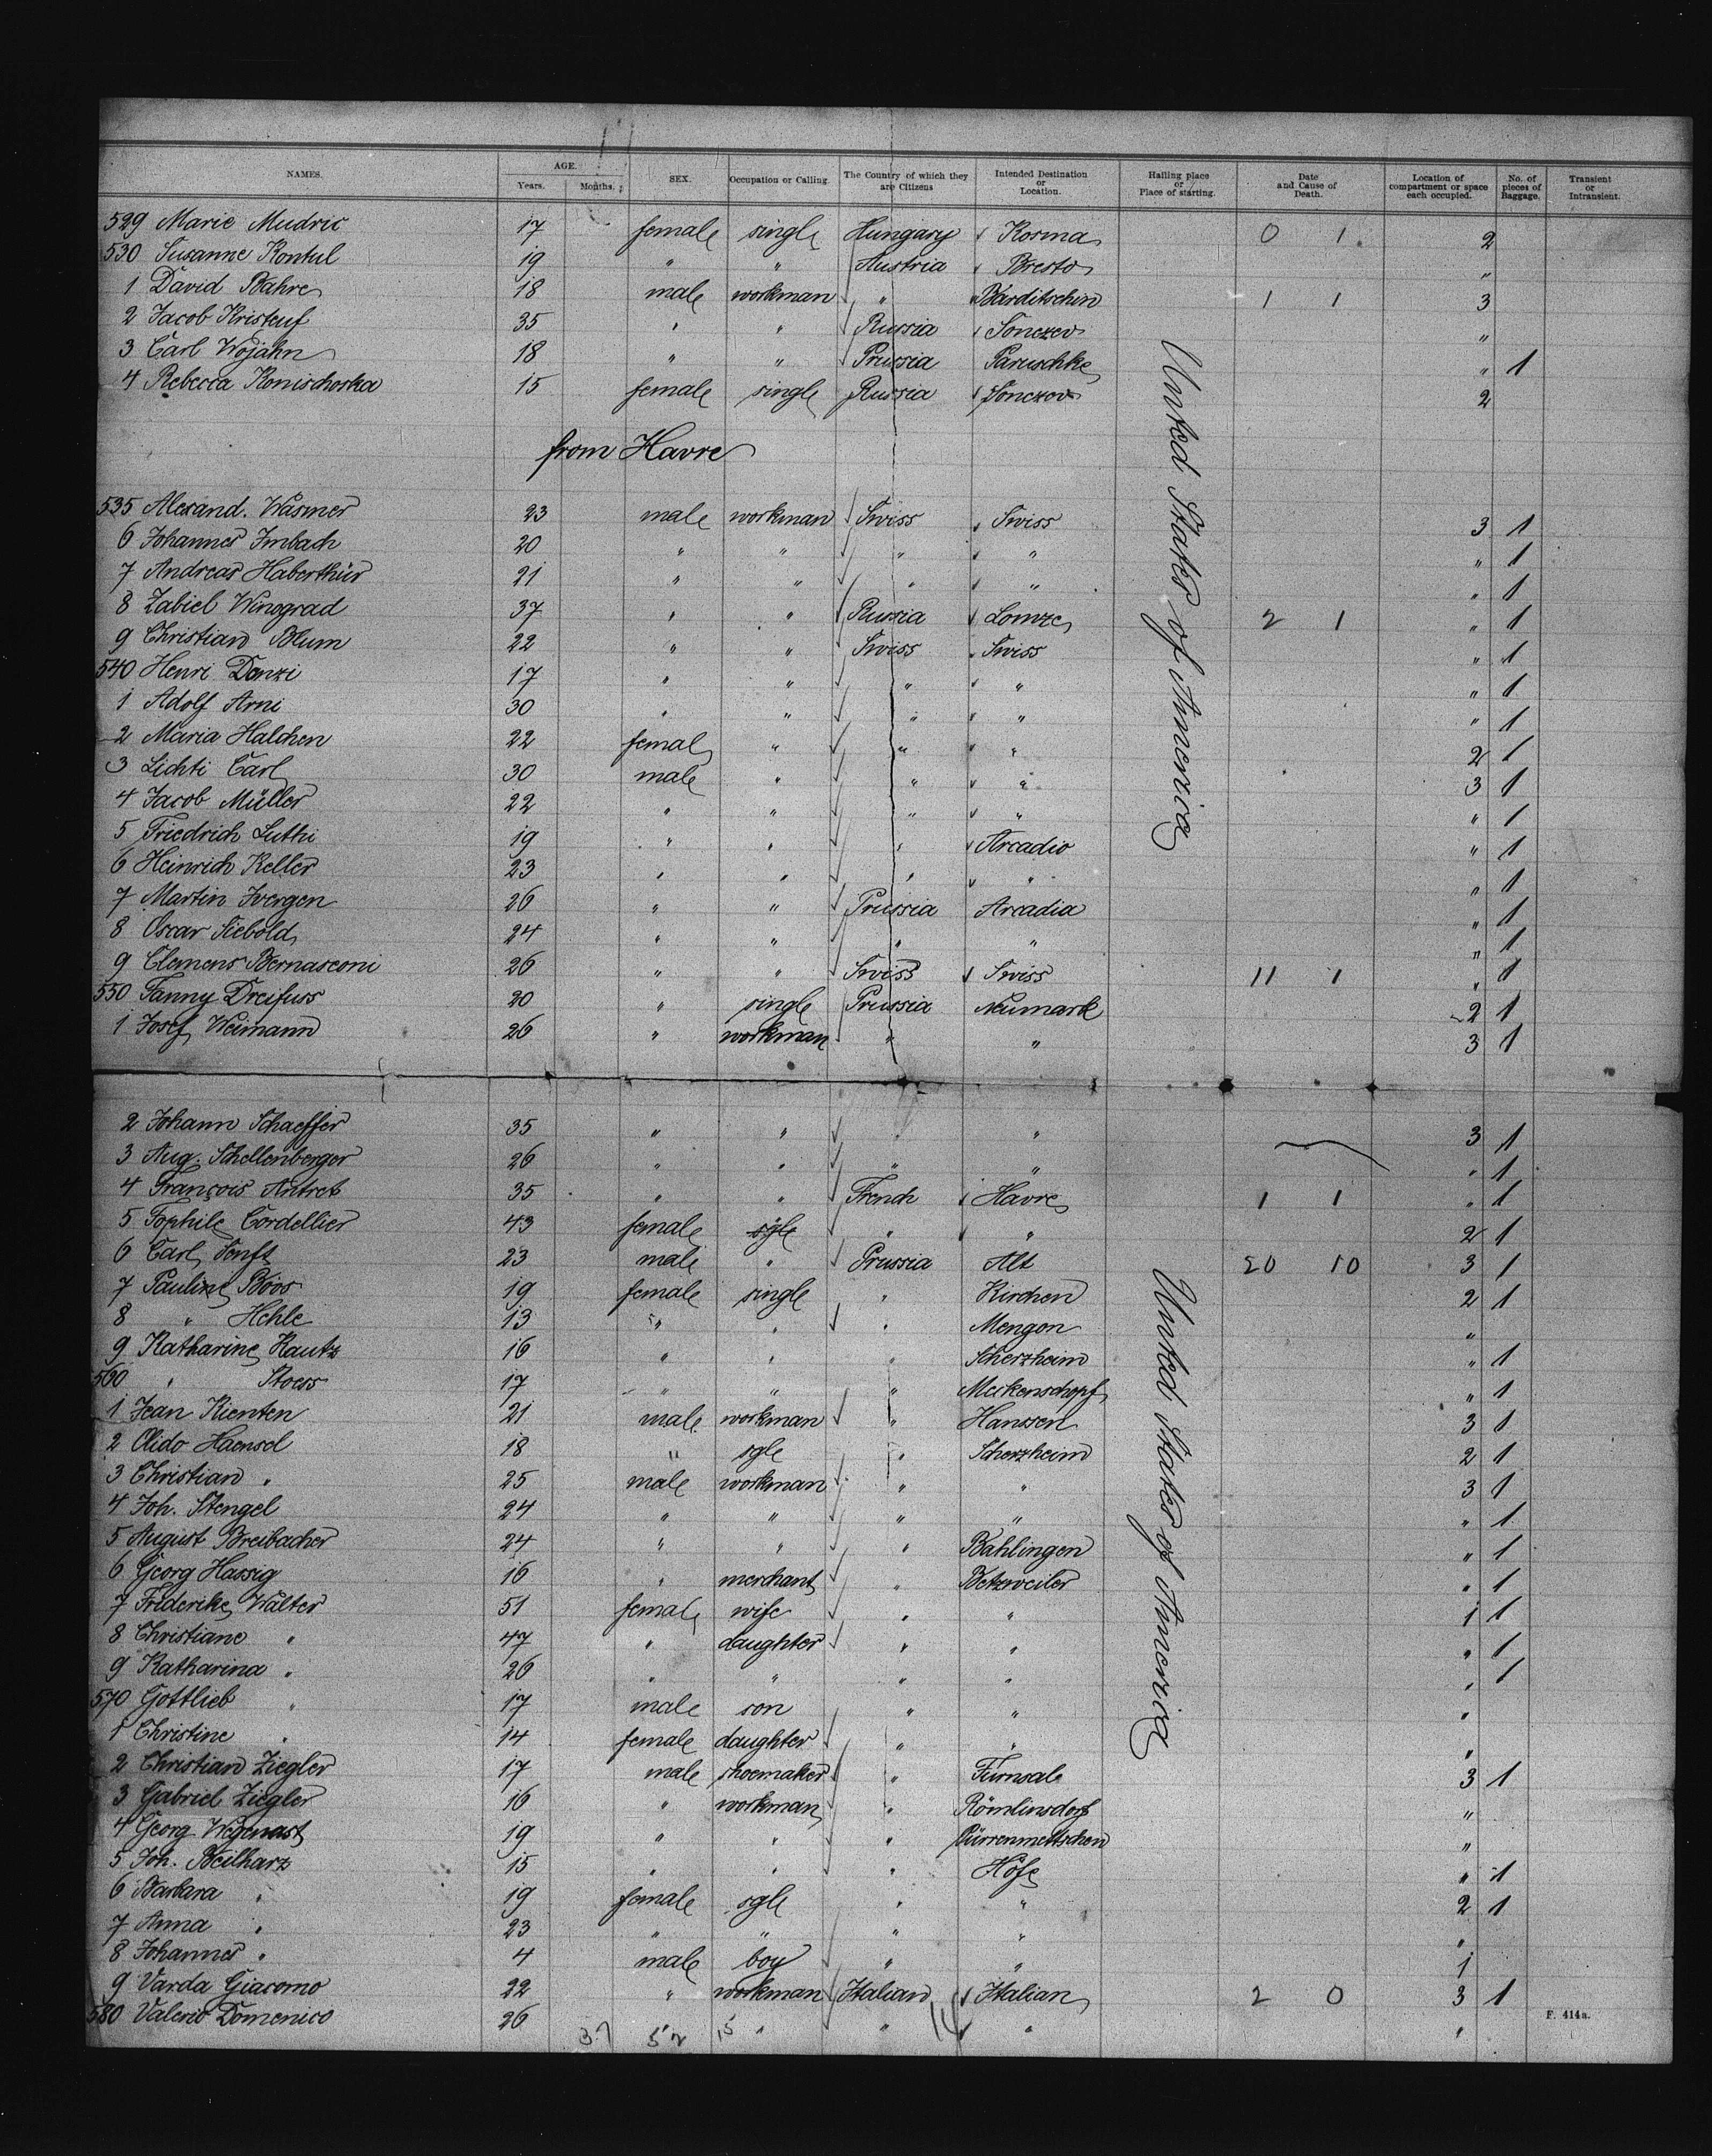 NAMES. AGE. Years. Months. SEX. Occupation or Calling. The Country of which they are Citizens Intended Destination or Location. Hailing place or Place of starting. Date and Cause of Death. Location of compartment or space each occupied. No. of pieces of Baggage. Transient or Intransient.
529 Marie Mudric 17 female single Hungary Kosma 0 1 2
530 Susanne Kontul 19 " " Austria Bresto "
1 David Bahre 18 male workman " Barditschin 1 1 3
2 Jacob Kristeuf 35 " " Russia Sonczev "
3 Carl Wojahn 18 " " Prussia Paruschke " 1
4 Rebecca Konischoska 15 female single Russia Sonczov 2
from Havre
535 Alexand. Wasmer 23 male workman Swiss Swiss 3 1
6 Johannes Imbach 20 " " " " " 1
7 Andreas Haberthür 21 " " " " " 1
8 Zabiel Winograd 37 " " Russia Lomze 2 1 " 1
9 Christian Blum 22 " " Swiss Swiss " 1
540 Henri Danzi 17 " " " " " 1
1 Adolf Arni 30 " " " " " 1
2 Maria Halchen 22 female " " " 2 1
3 Lichti Carl 30 male " " " 3 1
4 Jacob Müller 22 " " " " " 1
5 Friedrich Luthi 19 " " " Arcadio " 1
6 Heinrich Keller 23 " " " " " 1
7 Martin Ivergen 26 " " Prussia Arcadia " 1
8 Oscar Siebold 24 " " " " " 1
9 Clemens Bernasconi 26 " " Swiss Swiss 11 1 " 1
550 Fanny Dreifuss 20 " single Prussia Neumark 2 1
1 Josef Weimann 26 " workman " " 3 1
United States of America
2 Johann Schaeffer 35 " " " " 3 1
3 Aug. Schellenberger 26 " " " " " 1
4 François Antret 35 " " French Havre 1 1 " 1
5 Tophile Cordellier 43 female sgle " " 2 1
6 Carl Senft 23 male " Prussia Alt 20 10 3 1
7 Pauline Böos 19 female single " Kirchen 2 1
8 " Hehle 13 " " " Mengon "
9 Katharine Kautz 16 " " " Scherzheim " 1
560 " Stoess 17 " " " Meikenschopf " 1
1 Jean Kienten 21 male workman " Hanssen 3 1
2 Olido Haensel 18 " sgle " Scherzheim 2 1
3 Christian " 25 male workman " " 3 1
4 Joh. Stengel 24 " " " " " 1
5 August Breibacher 24 " " " Bahlingen " 1
6 Georg Hassig 16 " merchant " Betzweiler " 1
7 Friderike Walter 51 female wife " " 1 1
8 Christiane " 47 " daughter " " " 1
9 Katharina " 26 " " " " " 1
570 Gottlieb " 17 male son " " "
1 Christine " 14 female daughter " " "
2 Christian Ziegler 17 male shoemaker " Furnsal 3 1
3 Gabriel Ziegler 16 " workman " Römlinsdorf "
4 Georg Wegenast 19 " " " Dürrenmettschen "
5 Joh. Beilharz 15 " " " Höfe " 1
6 Barbara " 19 female sgle " " 2 1
7 Anna " 23 " " " " "
8 Johannes " 4 male boy " " 1
9 Varda Giacomo 22 " workman Italian Italian 2 0 3 1
580 Valerio Domenico 26 " " " "
United States of America
37 52 15 14
F. 414a.